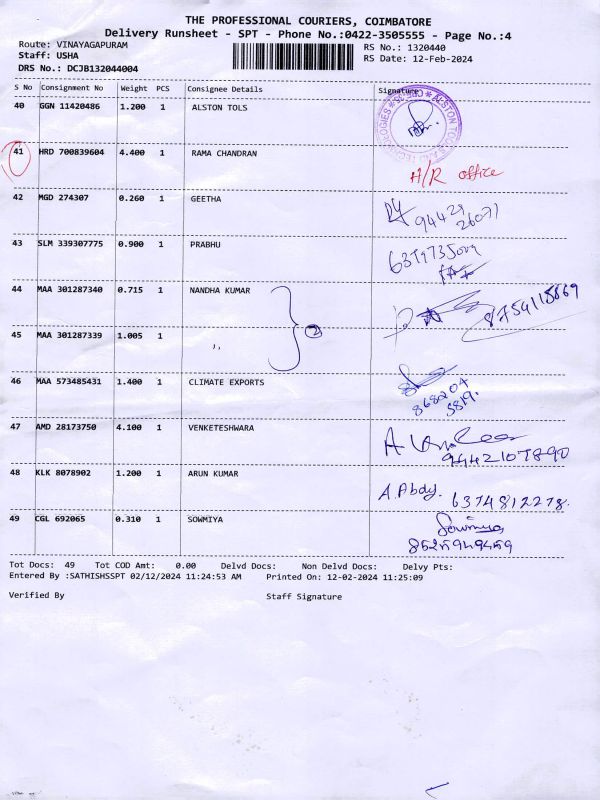 THE PROFESSIONAL COURIERS, COIMBATORE
Delivery Runsheet - SPT - Phone No.:0422-3505555 - Page No.:4
Route: VINAYAGAPURAM
RS No.: 1320440
Staff: USHA
RS Date: 12-Feb-2024
DRS No.: DCJB132044004
S No Consignment No Weight PCS Consignee Details Signature
40 GGN 11420486 1.200 1 ALSTON TOLS
ALSTON TOOLS AND TECHNOLOGIES
41 HRD 700839604 4.400 1 RAMA CHANDRAN
H/R office
42 MGD 274307 0.260 1 GEETHA
94429
26071
43 SLM 339307775 0.900 1 PRABHU
44 MAA 301287340 0.715 1 NANDHA KUMAR
8754115869
2
45 MAA 301287339 1.005 1 ,,
46 MAA 573485431 1.400 1 CLIMATE EXPORTS
868204
5819.
47 AMD 28173750 4.100 1 VENKETESHWARA
9442107890
48 KLK 8078902 1.200 1 ARUN KUMAR
A. Abdy. 6374812278.
49 CGL 692065 0.310 1 SOWMIYA
Sowmiya
8525949459
Tot Docs: 49 Tot COD Amt: 0.00 Delvd Docs: Non Delvd Docs: Delvy Pts:
Entered By :SATHISHSSPT 02/12/2024 11:24:53 AM Printed On: 12-02-2024 11:25:09
Verified By Staff Signature